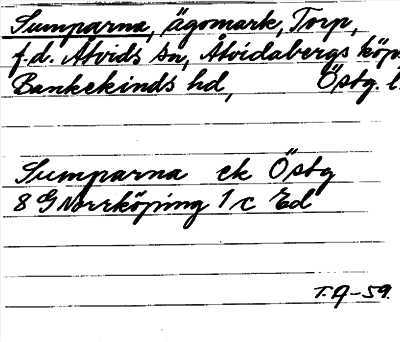 Sumparna, ägomark, Torp,
f.d. Åtvids sn, Åtvidabergs köp.
Bankekinds hd, Östg. l.
Sumparna ek Östg
8 G Norrköping 1 c Ed
T.A-59.